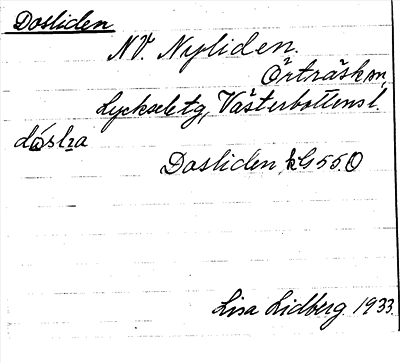 Dosliden
NV. Nyliden.
Örträsk sn,
Lycksele tg, Västerbottens l.
dósLıa
Dosliden, kG 55.0
Lisa Lidberg. 1933.